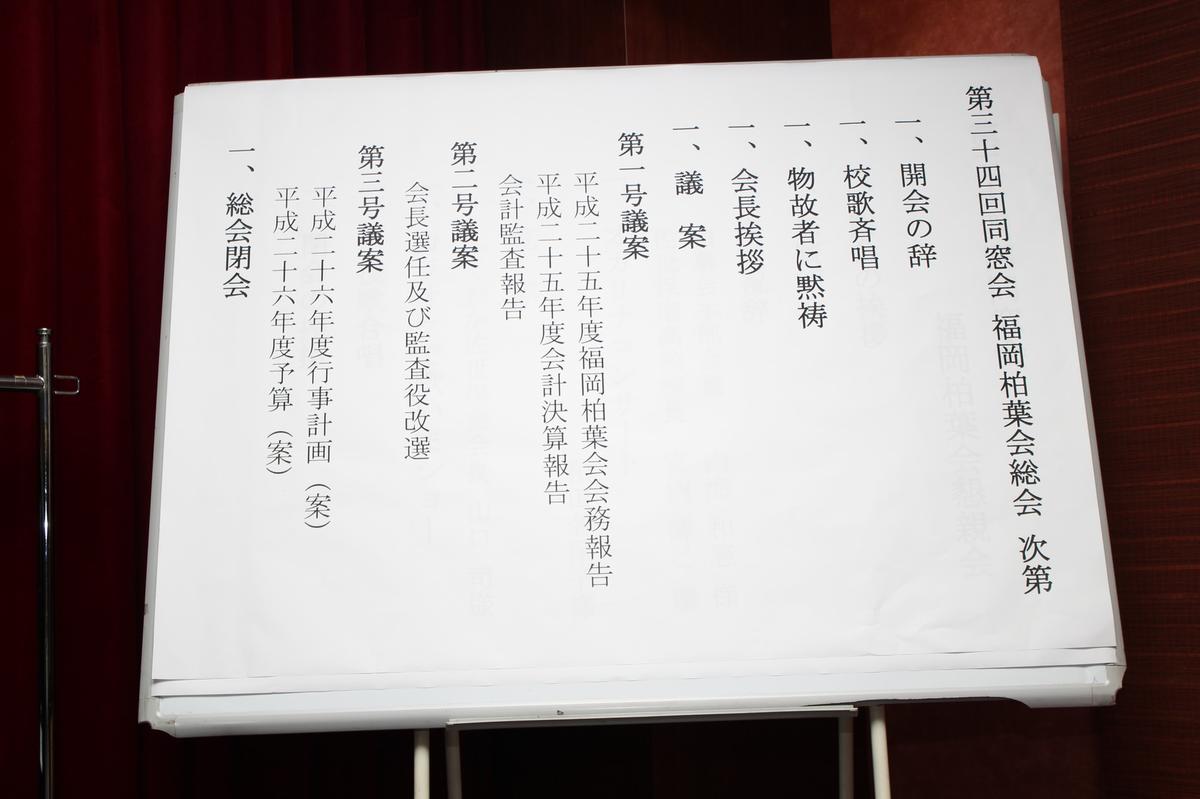 第三十四回同窓会 福岡柏葉会総会 次第
一、開会の辞
一、校歌斉唱
一、物故者に黙祷
一、会長挨拶
一、議 案
第一号議案
平成二十五年度福岡柏葉会会務報告
平成二十五年度会計決算報告
会計監査報告
第二号議案
会長選任及び監査役改選
第三号議案
平成二十六年度行事計画（案）
平成二十六年度予算（案）
一、総会閉会
福岡柏葉会懇親会